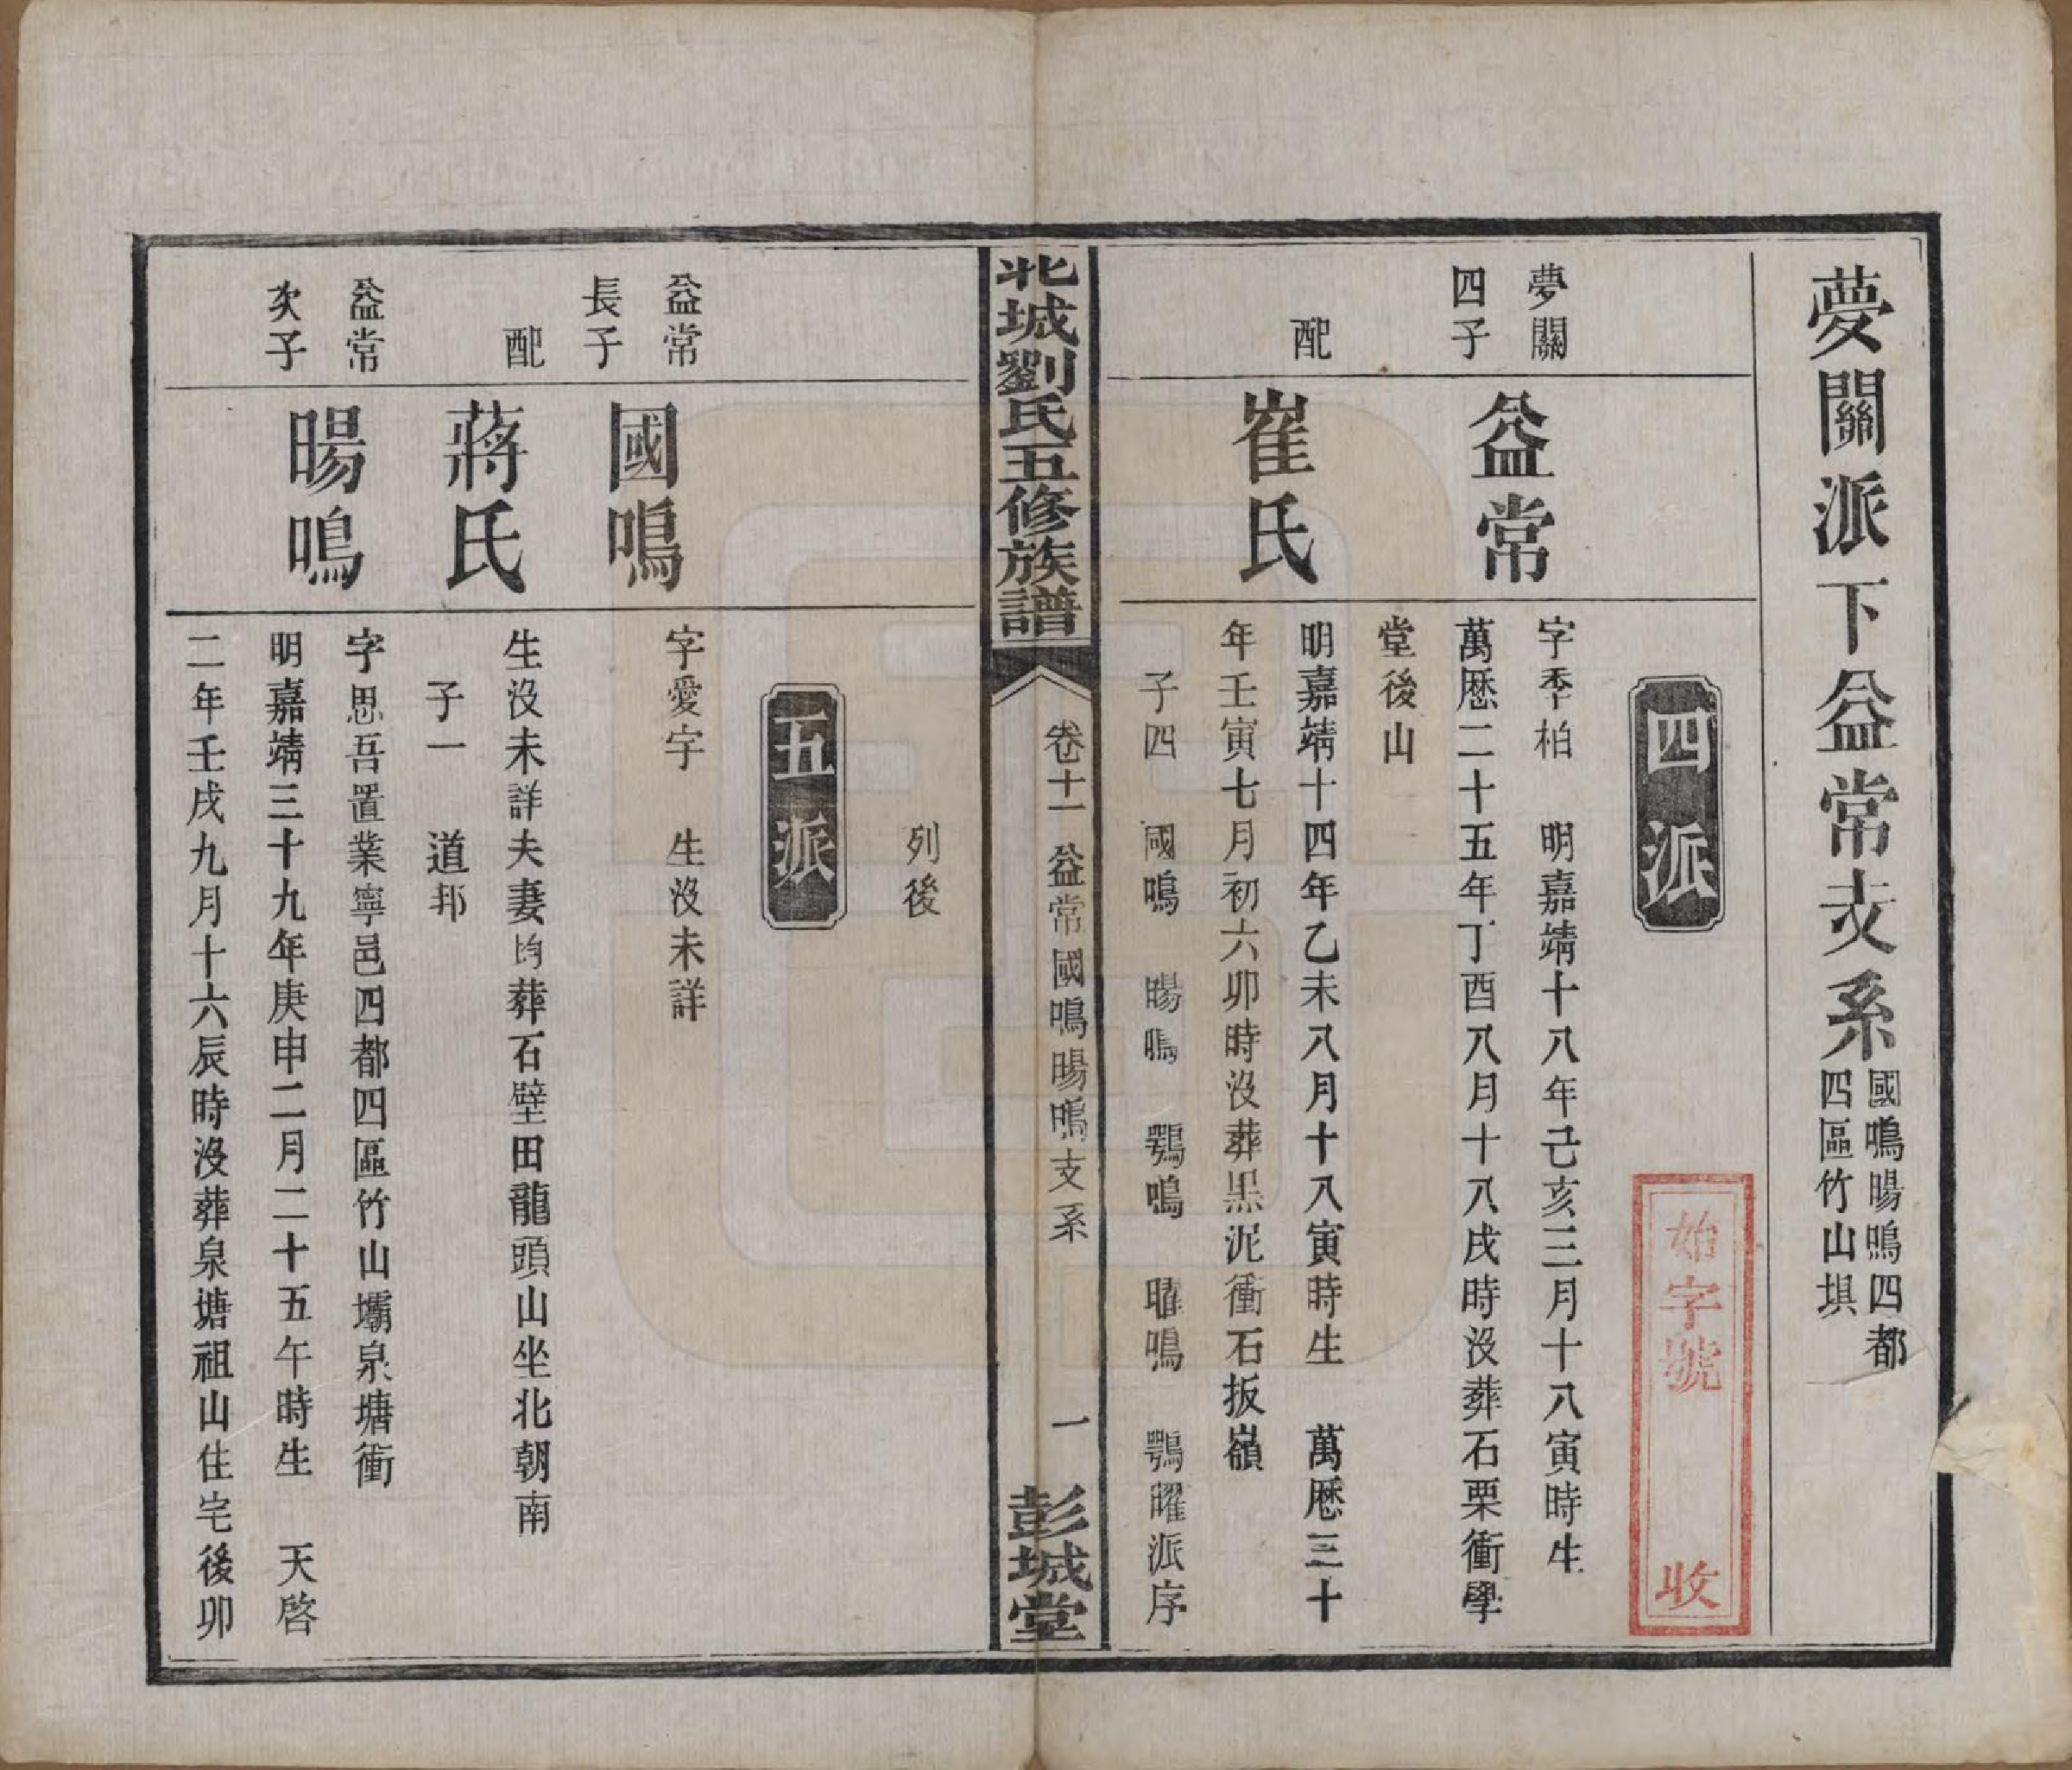 夢關派下益常支系
國鳴暘鳴四都
四區竹山塅
四派
始字號　收
夢關
四子
益常
字季柏　明嘉靖十八年己亥三月十八寅時生
萬厯二十五年丁酉八月十八戌時沒葬石栗衝學
堂後山
配
崔氏
明嘉靖十四年乙未八月十八寅時生　萬厯三十
年壬寅七月初六卯時沒葬黑泥衝石扳嶺
子四　國鳴　暘鳴　鶚鳴　曜鳴　鶚曜派序
北城劉氏五修族譜
卷十一　益常國鳴暘鳴支系
一
彭城堂
列後
五派
益常
長子
國鳴
字愛宇　生沒未詳
配
蔣氏
生沒未詳夫妻均葬石壁田龍頭山坐北朝南
子一　道邦
益常
次子
暘鳴
字思吾置業寧邑四都四區竹山壩泉塘衝
明嘉靖三十九年庚申二月二十五午時生　天啓
二年壬戌九月十六辰時沒葬泉塘祖山住宅後卯